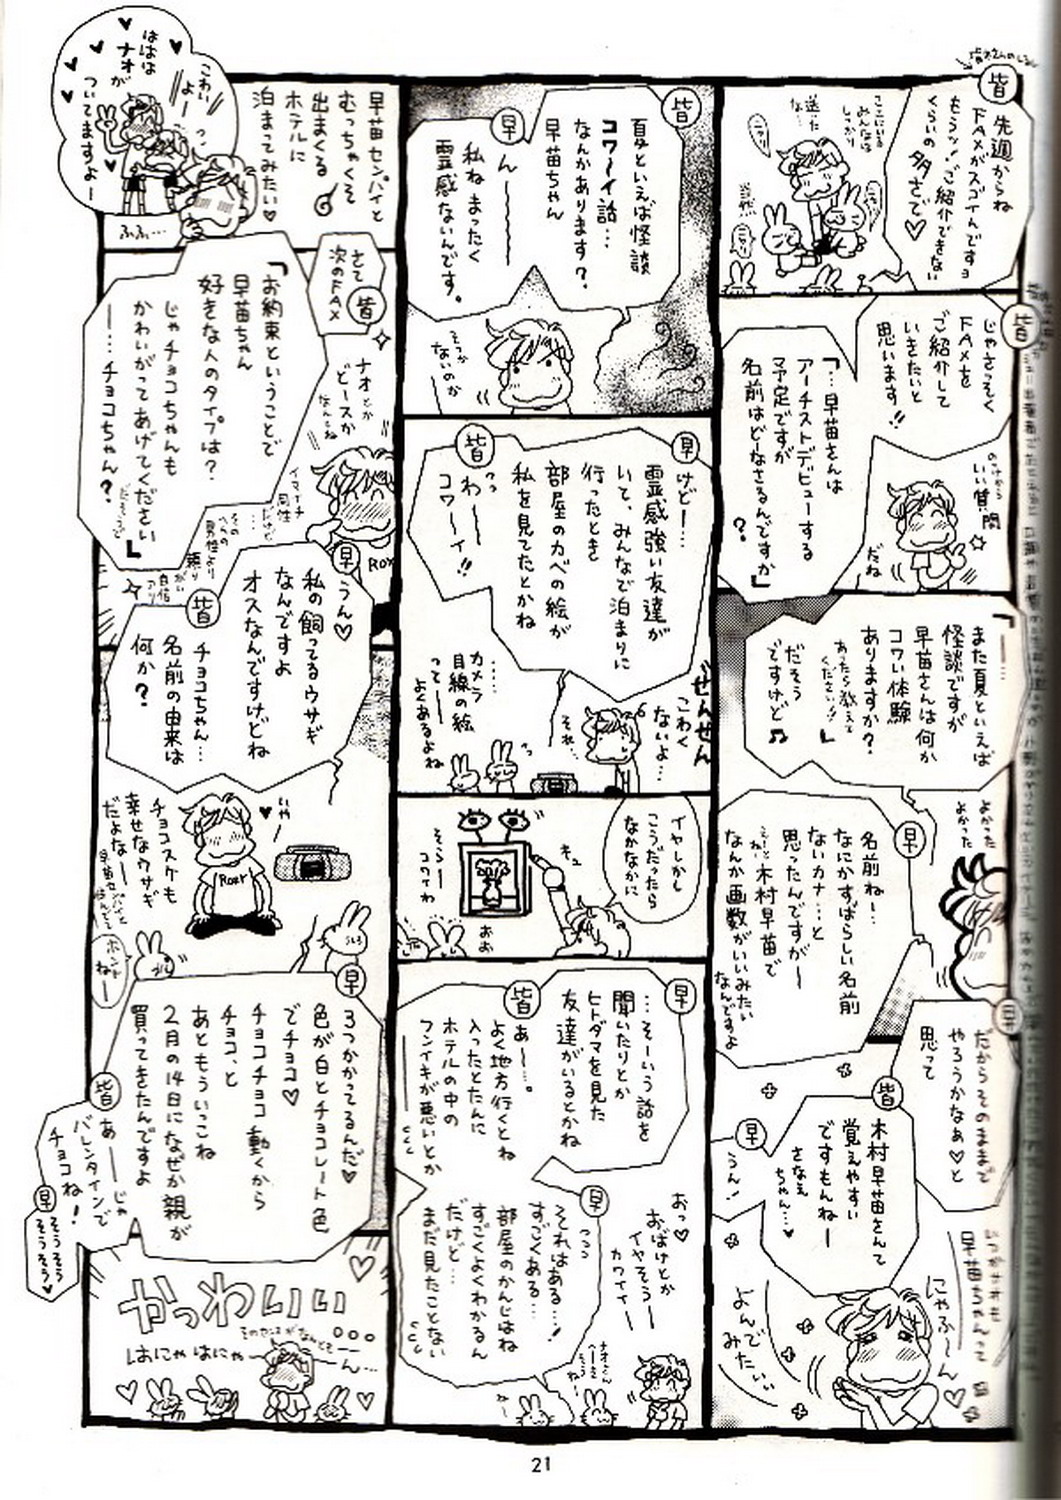 皆
先週からね
FAXがスゴイんですョ
もうッ!ご紹介できない
くらいの多さで♡
ここにいる
みんなは
しっかり
送った
な…
皆
じゃさっそく
FAXを
ご紹介して
いきたいと
思います!!
「…早苗さんは
アーチストデビューする
予定ですが
名前はどーなさるんですか」
?
のっけから
いい質問
だね
「…
また夏といえば
怪談ですが
早苗さんは何か
コワい体験
ありますか?
あったら教えて
ください!!」
だそう
ですけど♫
よかった
よかった
早
名前ねー…
なにかすばらしい名前
ないカナ…と
思ったんですがー
えーとね、木村早苗で
なんか画数がいいみたい
なんですよ
早
だからそのままで
やろうかなぁ♡と
思って
皆
木村早苗さんて
覚えやすい
ですもんねー
さなえ
ちゃん…♡
早
うん!
早苗ちゃんって
にゃふーん♡
よんで
みたいぃ
皆
夏といえば怪談
コワーイ話…
なんかあります?
早苗ちゃん
早
んーーー
私ねまったく
霊感ないんです。
そっか
ないのか
早
けどー…
霊感強い友達が
いて、みんなで泊まりに
行ったとき
部屋のカベの絵が
私を見てたとかね
皆
わーっっ
コワーイ!!
ぜんぜん
こわく
ないよ…
それ、
……
カメラ
目線の絵
ってー
よくあるよね
イヤしかし
こうだったら
なかなかに
キュ
そらー
コワイわ
おお
早
…そーいう話を
聞いたりとか
ヒトダマを見た
友達がいるとかね
皆
あー…。
よく地方行くとね
入ったとたんに
ホテルの中の
フンイキが悪いとか
早
それはある…!
すごくある…
部屋のかんじはね
すごくよくわかるん
だけど…
まだ見たことない
おっ♡
おばけとか
イヤそうー
カワイイー
早苗センパイと
むっちゃくそ
出まくる
ホテルに
泊まってみたい♡
こわい
よー
ははは
ナオが
ついてますよー
ふふ…
さて
次のFAX
皆
「お約束ということで
早苗ちゃん
好きな人のタイプは?
じゃチョコちゃんも
かわいがってあげてください
ー…チョコちゃん?」
だそうで
ナオとか
どースか
なんちね
イマイチ
同性
だけど…
その
へんの
男性より
頼り
がい
アリ
自信
早
うん♡
私の飼ってるウサギ
なんですよ
オスなんですけどね
皆
チョコちゃん…
名前の由来は
何か?
いやー
♥
チョコスケも
幸せなウサギ
だよなー
ホント
ねー
早
3つかかってるんだ♡
色が白とチョコレート色
でチョコ♡
チョコチョコ動くから
チョコ、と
あともういっこね
2月の14日になぜか親が
買ってきたんですよ
皆
あーーじゃ
バレンタインで
チョコね!
早
そうそう
そうそう♡
かっわいい
。。。
そのセンスがなんとも
はにゃはにゃーーん…
21